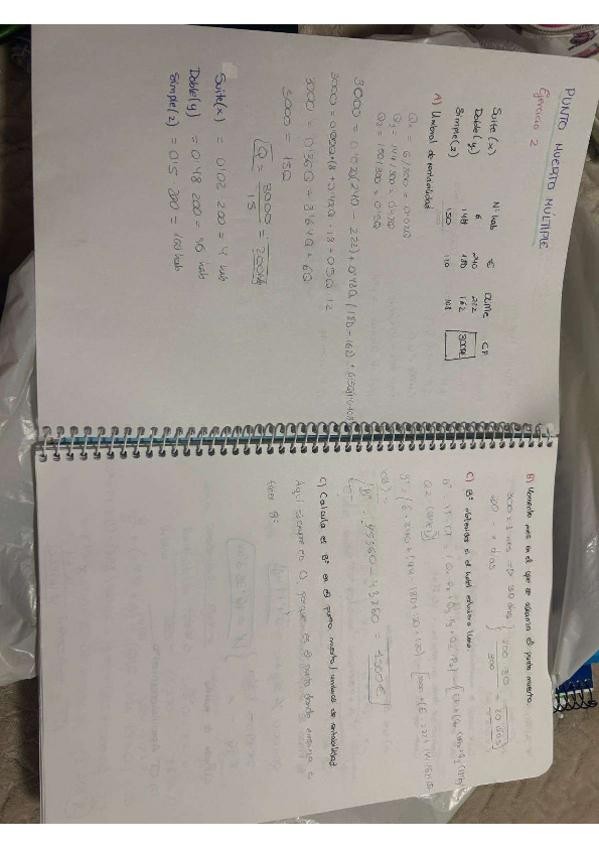 PUNTO MUERTO MÚLTIPLE
Ejercicio 2
Nº hab € CVMe CF
Suite (x) 6 240 222 3000
Doble (y) 144 180 162
Simple (z) 150 120 108
A) Umbral de rentabilidad
Qx = 6/300 = 0'02Q
Qy = 144/300 = 0'48Q
Qz = 150/300 = 0'5Q
3000 = 0'02Q(240 - 222) + 0'48Q (180 - 162) +
3000 = 0'02Q·18 + 0'48Q · 18 + 0'5Q · 12
3000 = 0'36Q + 8'64Q + 6Q
3000 = 15Q
Q = 3000 / 15 = 200
Suite(x) = 0'02 · 200 = 4 hab
Doble(y) = 0'48 · 200 = 96 hab
Simple(z) = 0'5 · 200 = 100 hab
B) Momento mes en el que se alcanza el punto muerto.
300 = 1 mes => 30 días
200 - x días
200 · 30 / 300 = 20 días
C) Bº obtenidos si el hotel estuviera lleno.
Bº = 45360 - 43860 = 1500€
C) Calcula el Bº en el punto muerto / umbral de rentabilidad
Aquí siempre es 0, porque es el punto donde empieza a
tener Bº